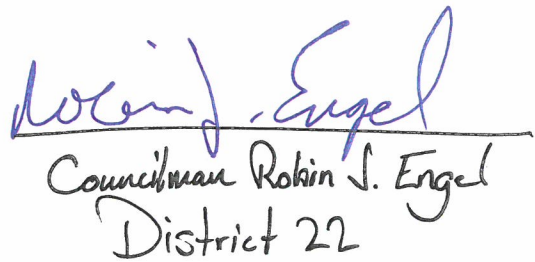 Robin J. Engel
Councilman Robin J. Engel
District 22